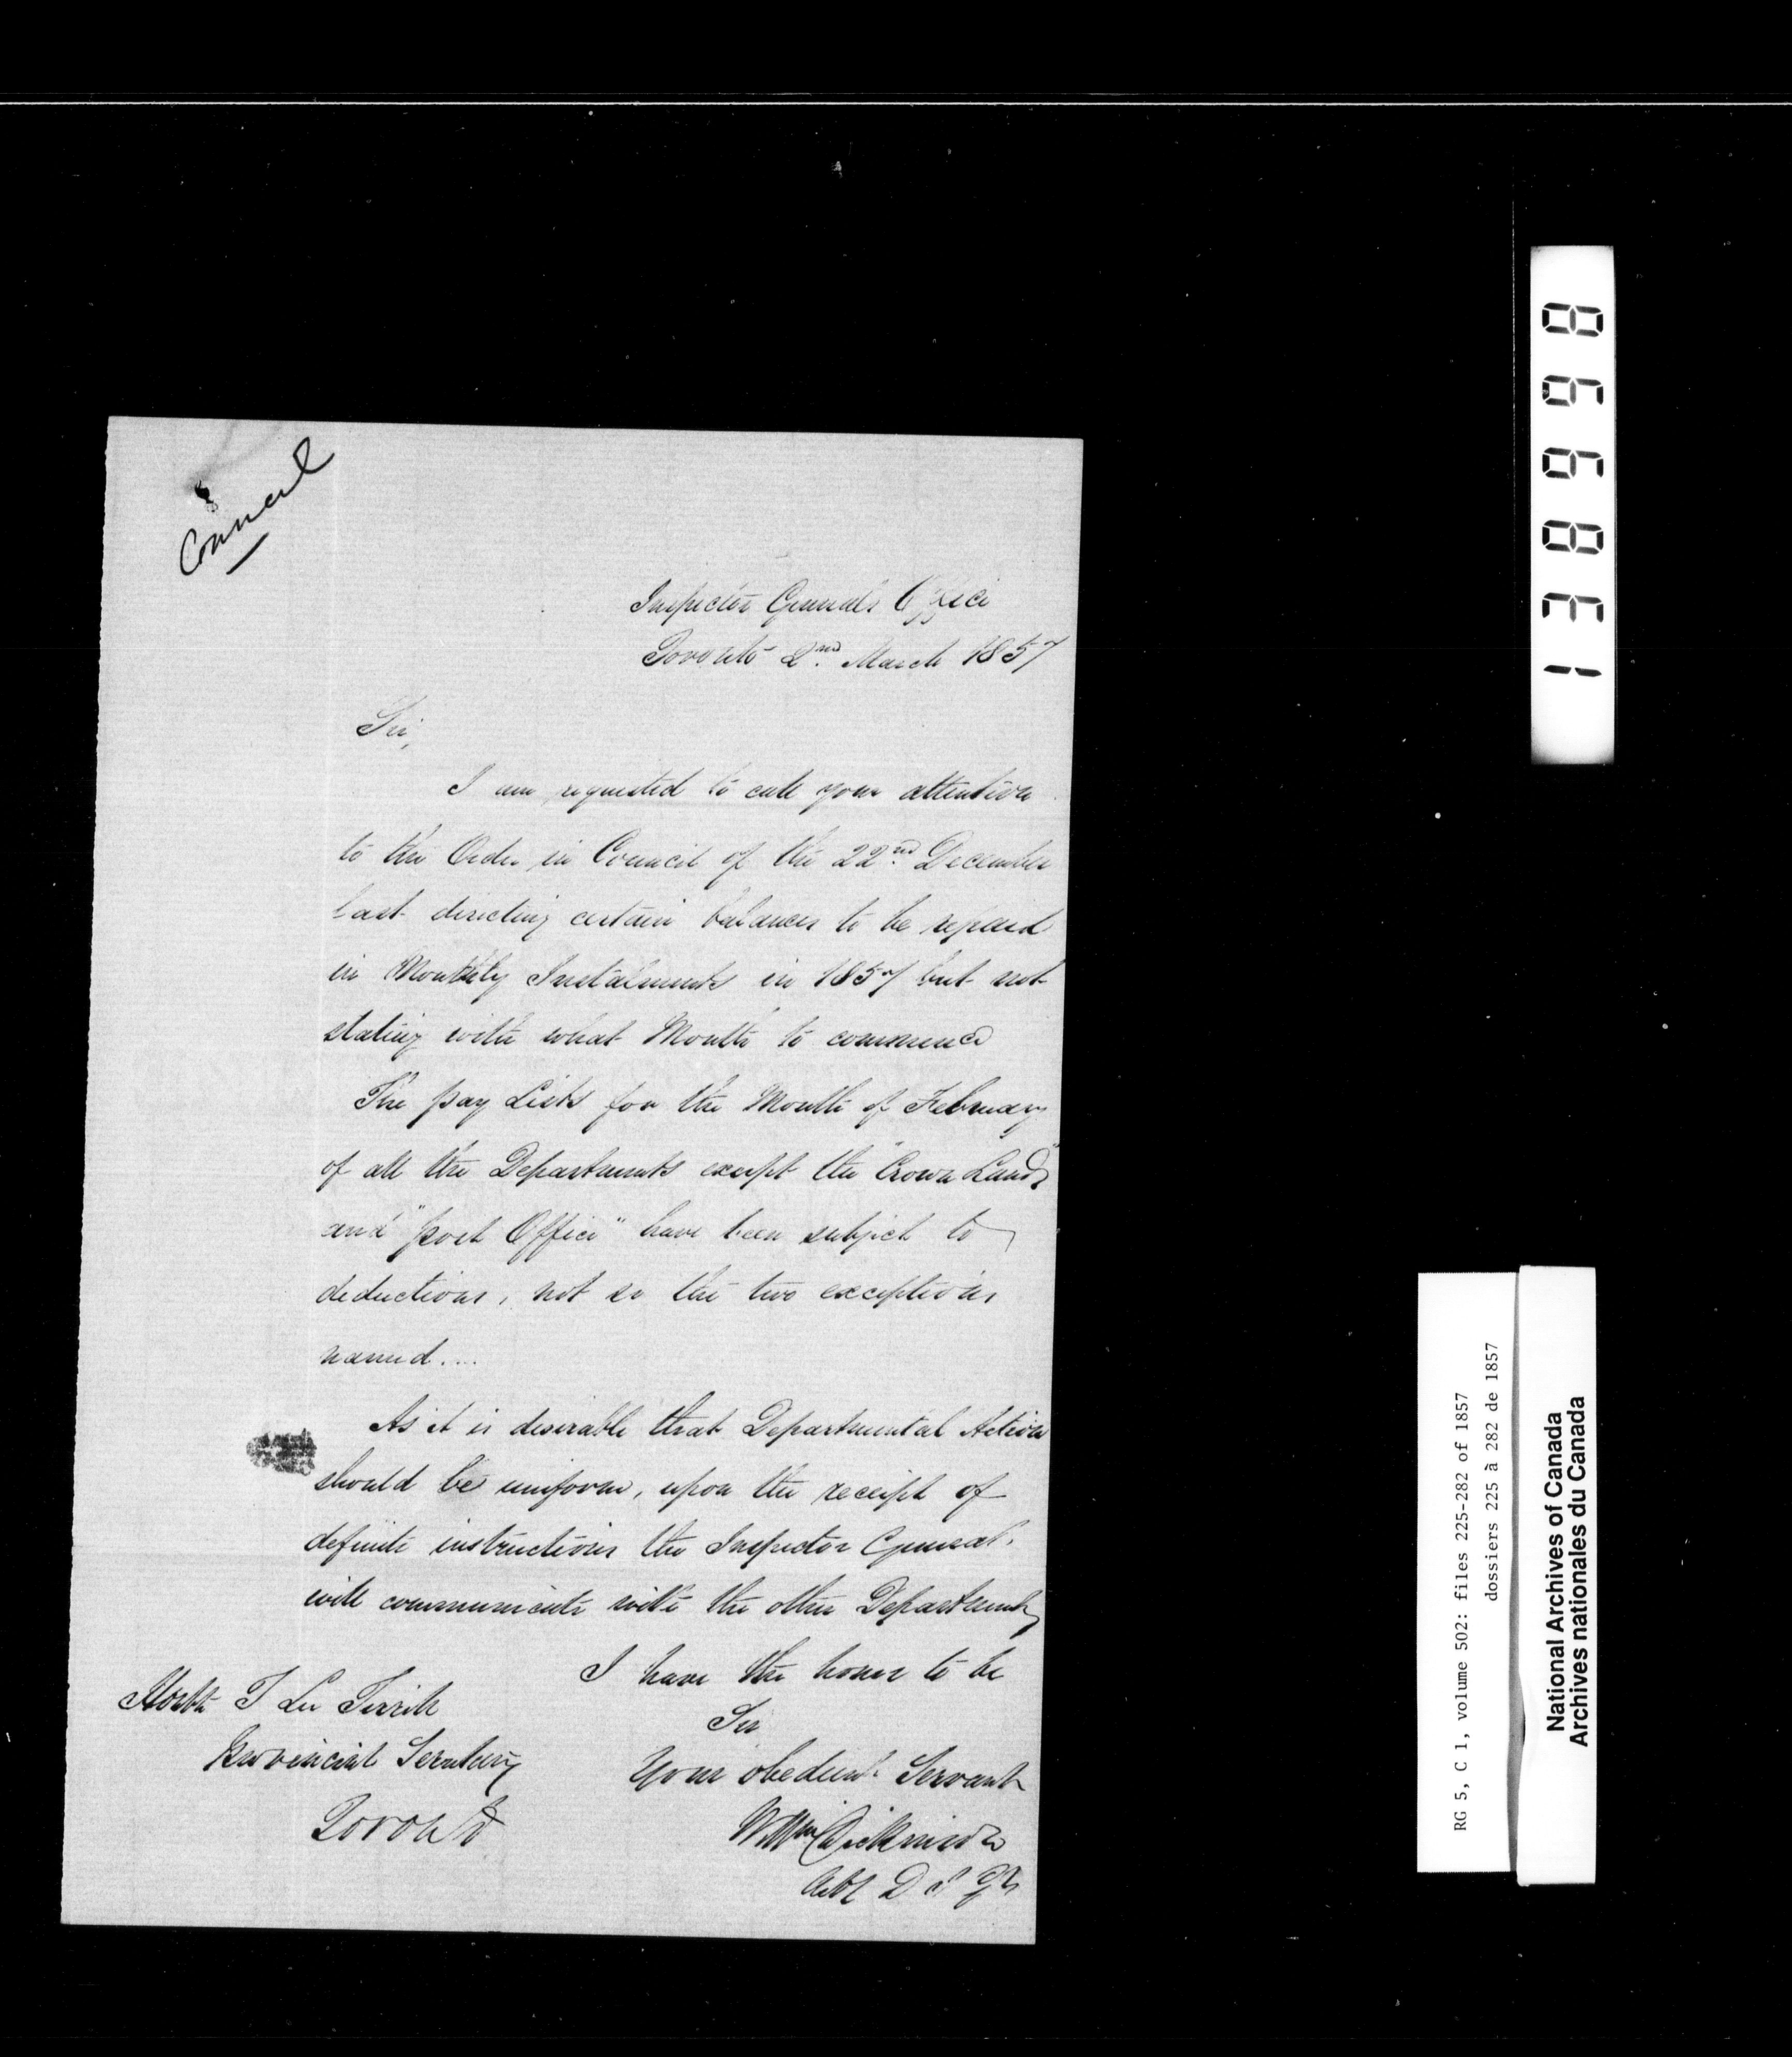 Council
Inspector Generals Office
Toronto 2nd March 1857
Sir,
I am requested to call your attention
to the Order in Council of the 22nd December
last directing certain balances to be repaid
in Monthly Instalments in 1857 but not
stating with what Month to commence
The pay Lists for the Month of February
of all the Departments except the "Crown Lands"
and "post Office" have been subject to
deductions, not so the two exceptions
named....
As it is desirable that Departmental Action
should be uniform, upon the receipt of
definite instructions the Inspector General.
will communicate with the other Departments
I have the honor to be
Sir
Your obedient Servant
Wm Dickinson
Actg D I Gl
Honble T Lee Terrill
Provincial Secretary
Toronto
138998
RG 5, C 1, volume 502: files 225-282 of 1857
dossiers 225 à 282 de 1857
National Archives of Canada
Archives nationales du Canada